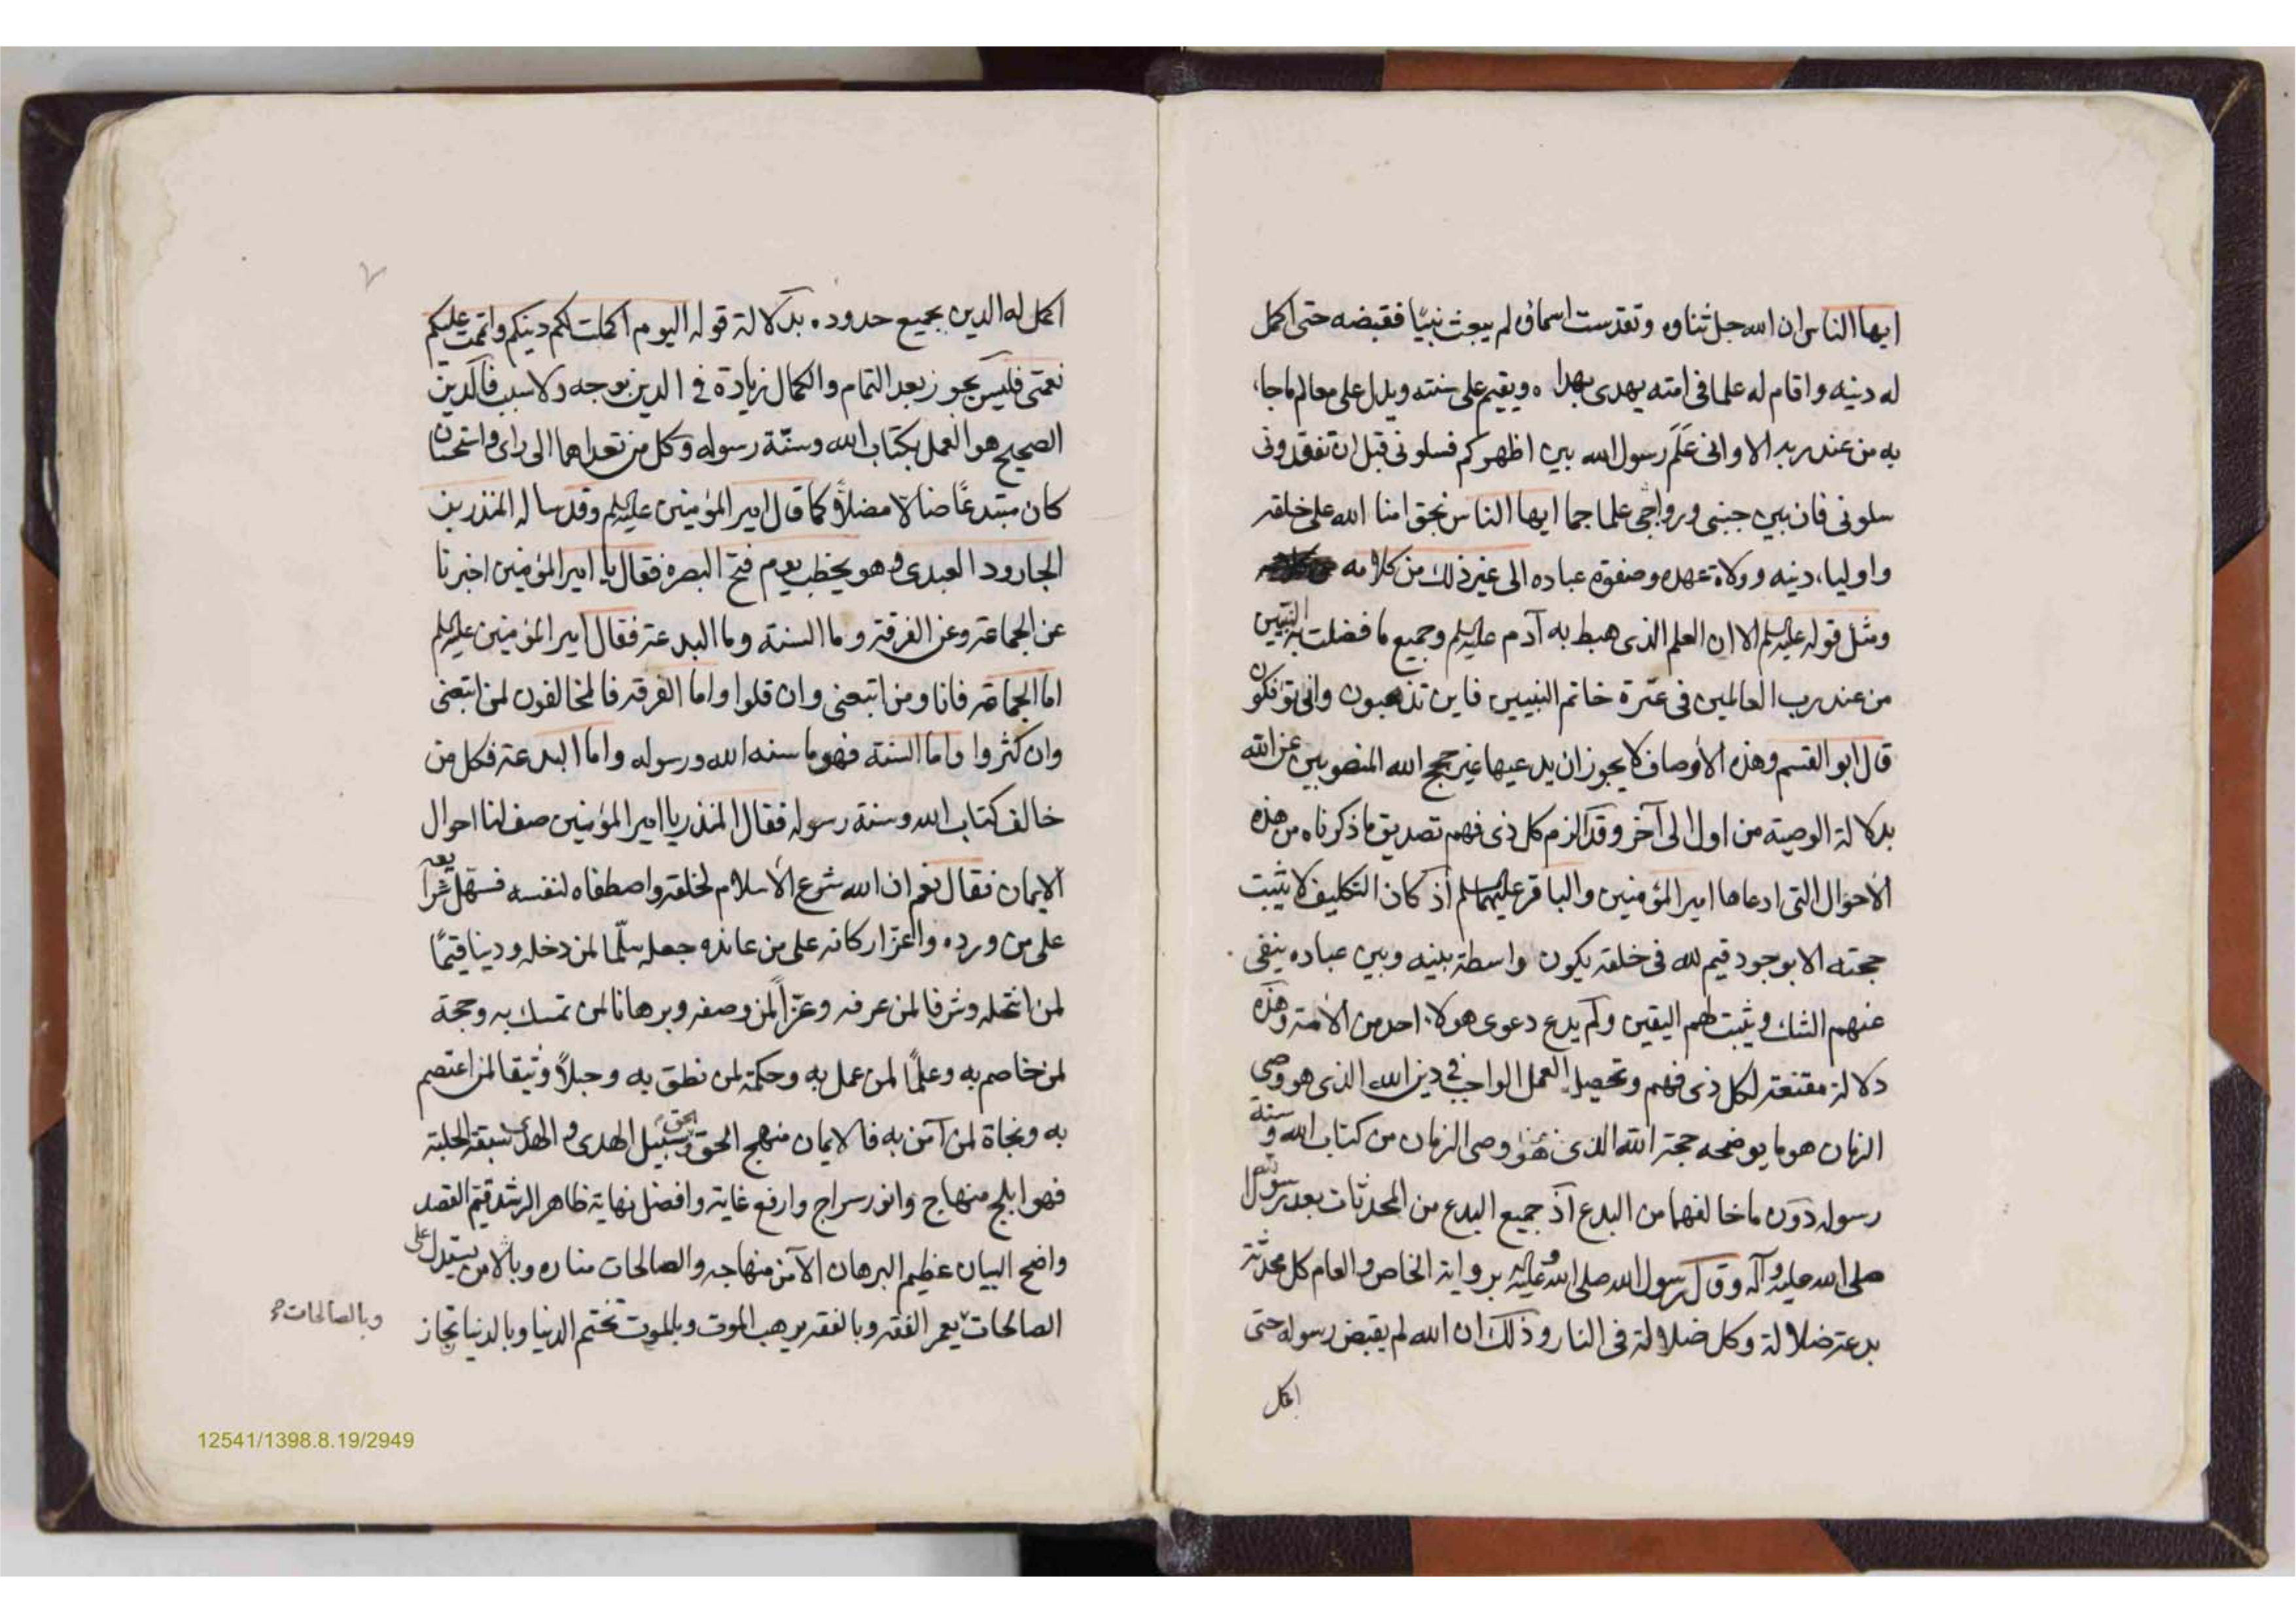 ايها الناس ان الله جل ثناوه وتقدست اسماؤه لم يبعث نبيًا فقبضه حتى اكمل
له دينه واقام له علما فى امته يهدى بهداه ويقيم على سنته ويدل على معالم ماجاء
به من عند ربه الا وانى عَلَم رسول الله بين اظهركم فسلونى قبل ان تفقدونى
سلونى فان بين جنبى علما جما ايها الناس نحن امنا الله على خلقه
واولياء دينه وولاة عهده وصفوة عباده الى غير ذلك من كلامه
ومثل قوله عليه السلم الا ان العلم الذى هبط به آدم عليه السلم وجميع ما فضلت به النبيين
من عند رب العالمين فى عترة خاتم النبيين فاين تذهبون وانى تؤفكون
قال ابو القسم وهذه الأوصاف لا يجوز ان يدعيها غير حجج الله المنصوبين عن الله
بدلالة الوصية من اول الى آخر وقد الزم كل ذى فهم تصديق ما ذكرناه من هذه
الأحوال التى ادعاها امير المؤمنين والباقر عليهما السلم اذ كان التكليف لا يثبت
حجته الا بوجود قيم لله فى خلقه يكون واسطة بينه وبين عباده ينفى
عنهم الشك ويثبت لهم اليقين ولم يدع دعوى هولاء احد من الأمة وهذه
دلالة مقنعة لكل ذى فهم وتحصيل العمل الواجب فى دين الله الذى هو وصى
الزمان هو ما يوضحه حجة الله الذى هو وصى الزمان من كتاب الله وسنة
رسوله دون ما خالفهما من البدع اذ جميع البدع من المحدثات بعد رسول الله
صلى الله عليه وآله وقال رسول الله صلى الله عليه وآله برواية الخاص والعام كل محدثة
بدعة ضلالة وكل ضلالة فى النار وذلك ان الله لم يقبض رسوله حتى
اكمل
اكمل له الدين بجميع حدوده بدلالة قوله اليوم اكملت لكم دينكم واتممت عليكم
نعمتى فليس يجوز بعد التمام والكمال زيادة فى الدين بوجه ولا سبب فالدين
الصحيح هو العمل بكتاب الله وسنّة رسوله وكل من تعداهما الى راى واستحسان
كان مبتدعًا ضالا مضلاً كما قال امير المؤمنين عليه السلم وقد ساله المنذر بن
الجارود العبدى وهو يخطب يوم فتح البصرة فقال يا امير المؤمنين اخبرنا
عن الجماعة وعن الفرقة وما السنة وما البدعة فقال امير المؤمنين عليه السلم
اما الجماعة فانا ومن اتبعنى وان قلوا واما الفرقة فالمخالفون لمن اتبعنى
وان كثروا واما السنة فهو ما سنه الله ورسوله واما البدعة فكل من
خالف كتاب الله وسنة رسوله فقال المنذر يا امير المؤمنين صف لنا احوال
الايمان فقال نعم ان الله شرع الأسلام لخلقه واصطفاه لنفسه فسهل شرايعه
على من ورده واعز اركانه على من عانده جعله سلّما لمن دخله ودينا قيّمًا
لمن انتحله وشرفا لمن عرفه وعزّاً لمن وصفه وبرهانا لمن تمسك به وحجة
لمن خاصم به وعلمًا لمن عمل به وحكمة لمن نطق به وحبلاً وثيقا لمن اعتصم
به ونجاة لمن آمن به فالايمان منهج الحق وسبيل الهدى والهدى سبقة الحلبة
فهو ابلج منهاج وانور سراج وارفع غاية وافضل نهاية ظاهر الرشد قيّم القصد
واضح البيان عظيم البرهان الأمن منهاجه والصالحات مناره وبالأمن يستدل على
الصالحات يعمر الفقه وبالفقه يرهب الموت وبالموت تختم الدنيا وبالدنيا تجاز
وبالصالحات
12541/1398.8.19/2949